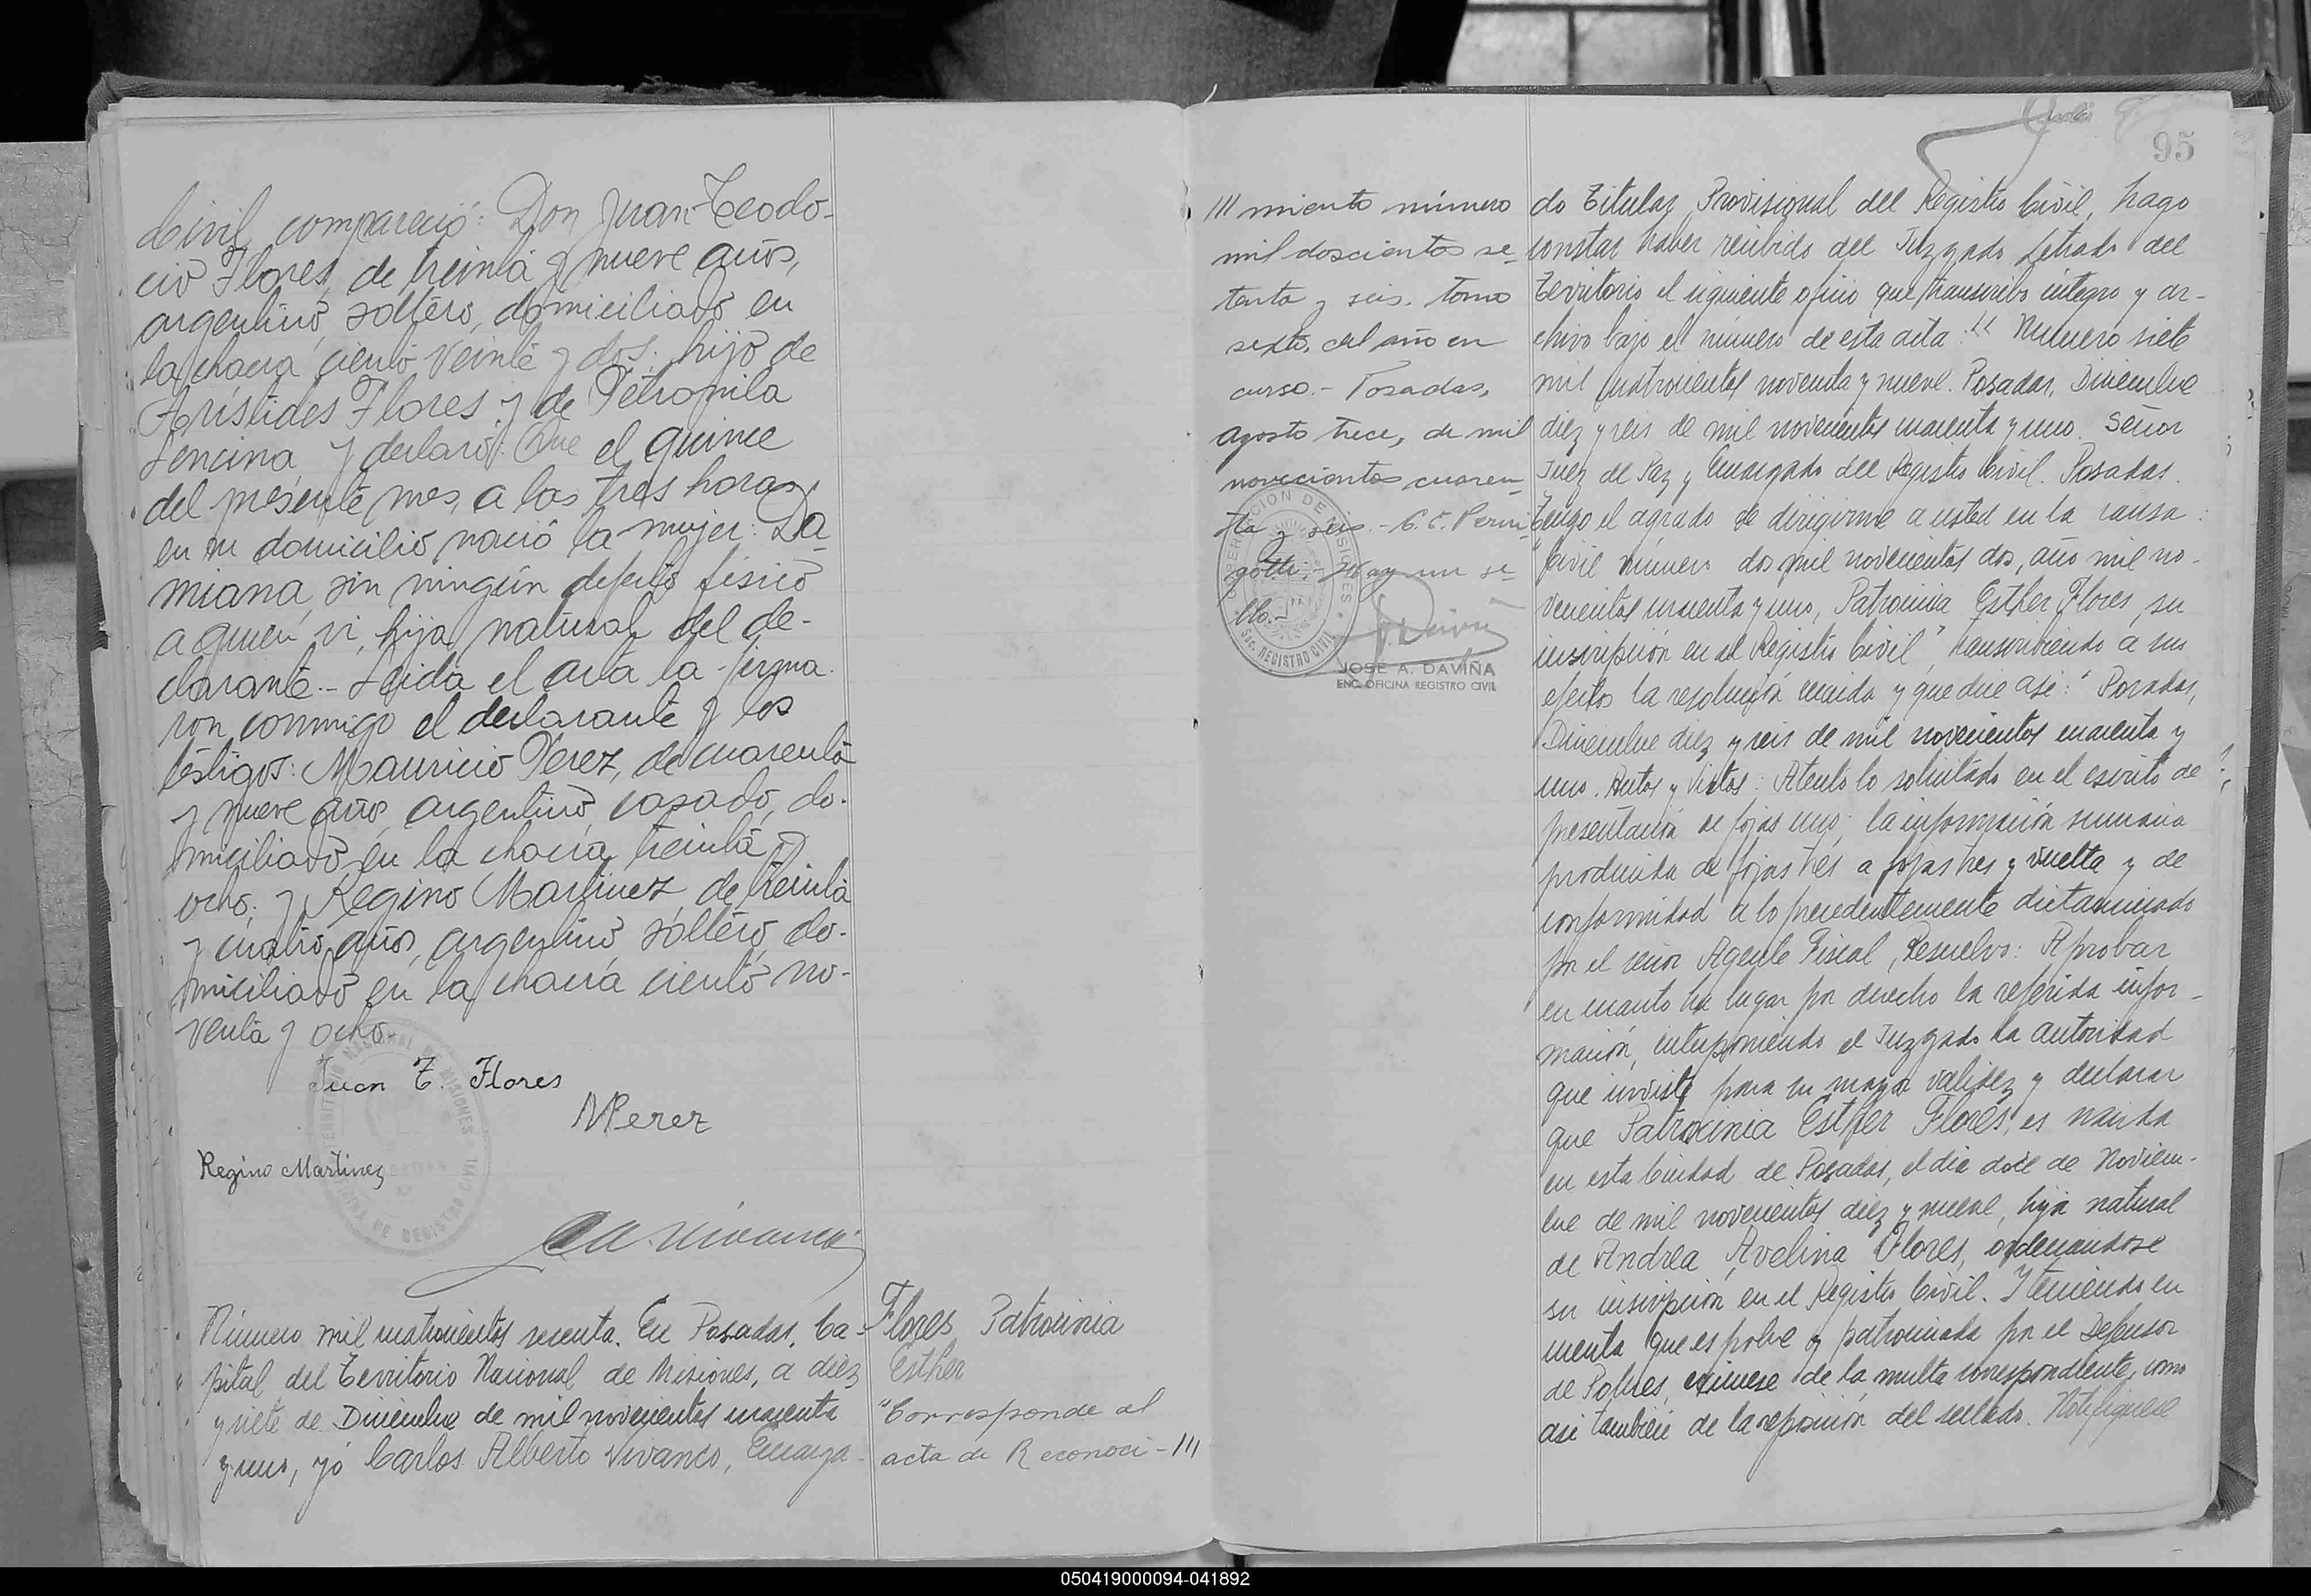 Civil, compareció: Don Juan Teodo-
cio Flores, de treinta y nueve años,
argentino, soltero, domiciliado en
la chacra ciento veinte y dos; hijo de
Arístides Flores y de Petronila
Lencina y declaró: Que el quince
del presente mes, a las tres horas,
en su domicilio nació la mujer: Da-
miana, sin ningún defecto físico
a quien vi, hija natural del de-
clarante.- Leida el acta la firma-
ron conmigo el declarante y los
testigos: Mauricio Perez, de cuarenta
y nueve años, argentino, casado, do-
miciliado en la chacra treinta y
ocho; y Regino Martinez, de treinta
y cuatro años, argentino, soltero, do-
miciliado en la chacra ciento no-
venta y ocho.
Juan T. Flores
MPerez
Regino Martinez
Número mil cuatrocientos sesenta. En Posadas, Ca-
pital del Territorio Nacional de Misiones, a diez
y siete de Diciembre de mil novecientos cuarenta
y uno, yó Carlos Alberto Vivanco, Encarga-
Flores Patrocinia
Esther
"Corresponde al
acta de Reconoci-///
/// miento número
mil doscientos se-
tenta y seis. tomo
sexto, del año en
curso.- Posadas,
agosto trece, de mil
novecientos cuaren-
ta y seis.- C. E. Perni
gotti. Hay un se-
llo.-"
GOBERNACION DE MISIONES
Sec. REGISTRO CIVIL
JOSE A. DAVIÑA
ENC. OFICINA REGISTRO CIVIL
95
do Titular Provisional del Registro Civil, hago
constar haber recibido del Juzgado Letrado del
Territorio el siguiente oficio que transcribo íntegro y ar-
chivo bajo el número de esta acta: "Numero siete
mil cuatrocientos noventa y nueve. Posadas, Diciembre
diez y seis de mil novecientos cuarenta y uno. Señor
Juez de Paz y Encargado del Registro Civil. Posadas.
Tengo el agrado de dirigirme a usted en la causa:
"Civil número dos mil novecientos dos, año mil no-
vecientos cuarenta y uno, Patrocinia Esther Flores, su
inscripción en el Registro Civil", transcribiendo a sus
efectos la resolución recaida y que dice asi: "Posadas,
Diciembre diez y seis de mil novecientos cuarenta y
uno. Autos y Vistos: Atento lo solicitado en el escrito de
presentación de fojas uno; la información sumaria
producida de fojas tres a fojas tres y vuelta y de
conformidad a lo precedentemente dictaminado
por el señor Agente Fiscal, Resuelvo: Aprobar
en cuanto ha lugar por derecho la referida infor-
mación, interponiendo el Juzgado la autoridad
que inviste para su mayor validez y declarar
que Patrocinia Esther Flores, es nacida
en esta Ciudad de Posadas, el dia doce de Noviem-
bre de mil novecientos diez y nueve, hija natural
de Andrea Avelina Flores, ordenandose
su inscripción en el Registro Civil. Y teniendo en
cuenta que es pobre y patrocinada por el Defensor
de Pobres, eximese de la multa correspondiente, como
asi tambien de la reposición del sellado. Notifiquese